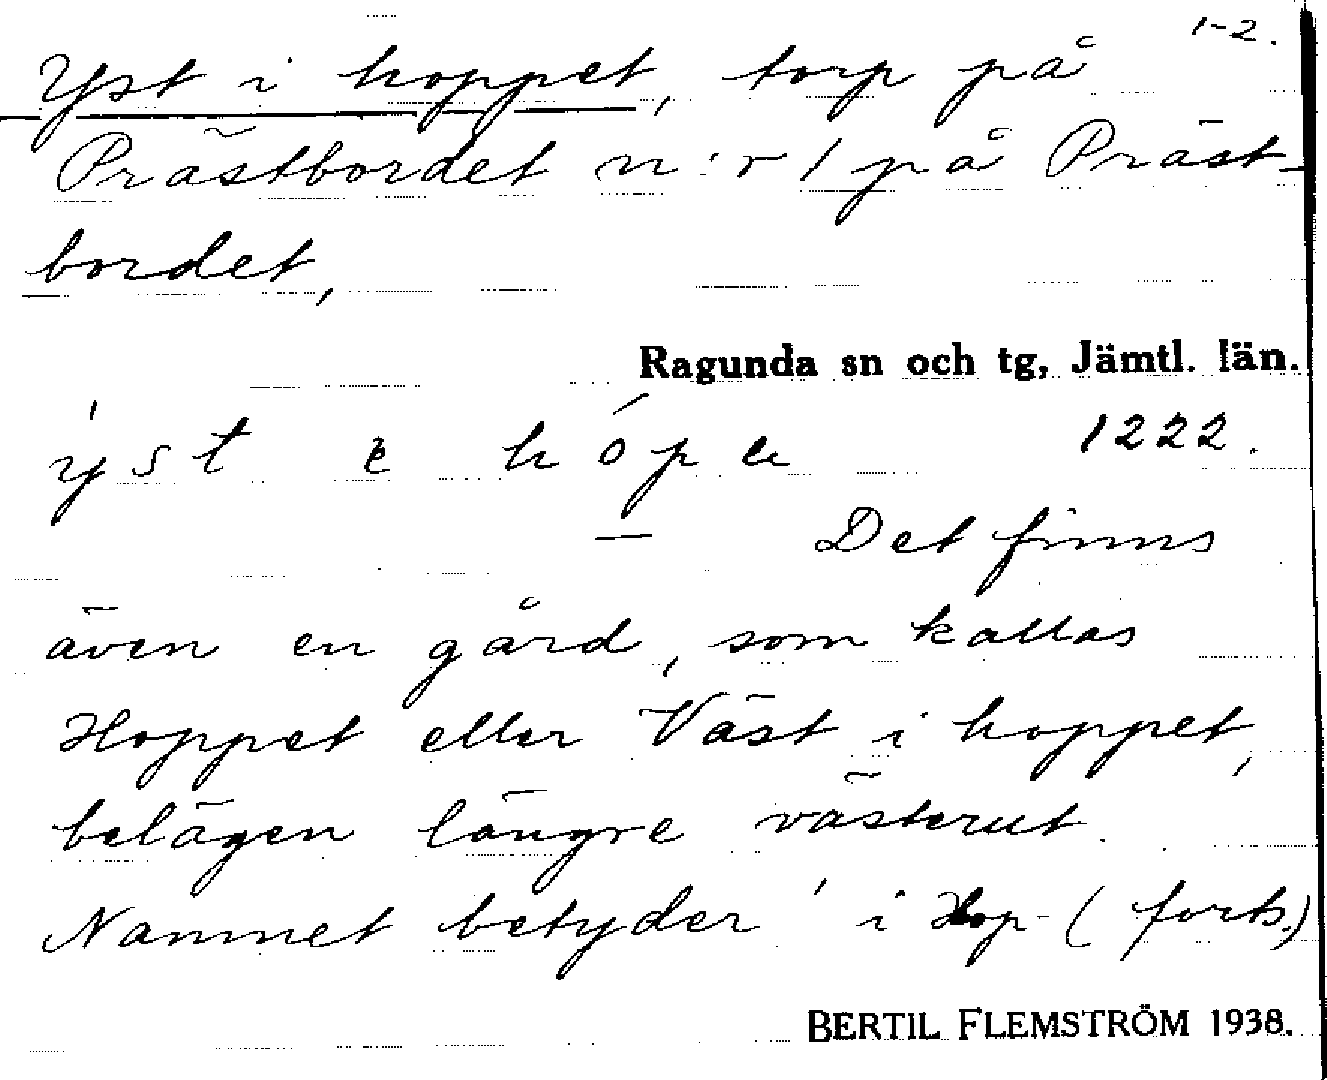 1-2.
Yst i hoppet, torp på
Prästbordet n:r 1 på Präst-
bordet,
Ragunda sn och tg, Jämtl. län.
ýst e hópe 1222.
Det finns
även en gård, som kallas
Hoppet eller Väst i hoppet,
belägen längre västerut.
Namnet betyder ' i Hop- (forts.)
BERTIL FLEMSTRÖM 1938.